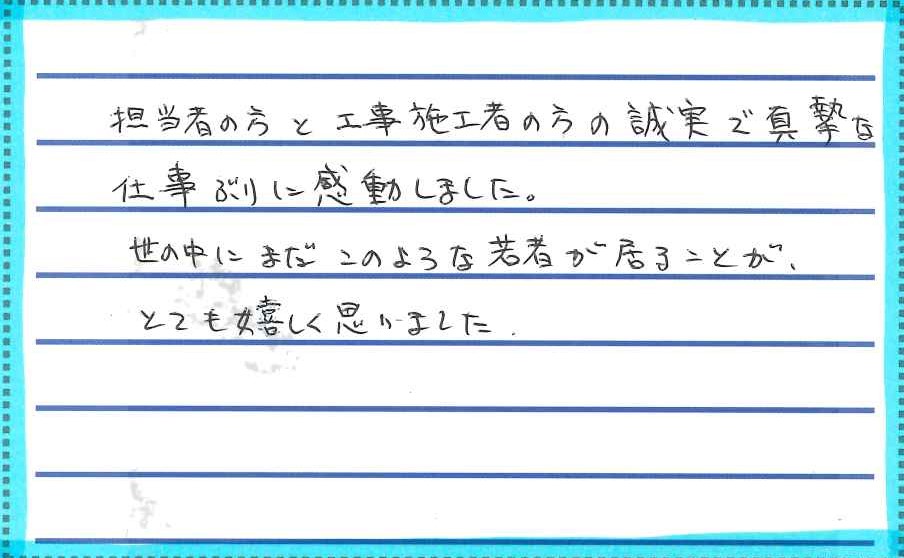 担当者の方と工事施工者の方の誠実で真摯な
仕事ぶりに感動しました。
世の中にまだこのような若者が居ることが、
とても嬉しく思いました.